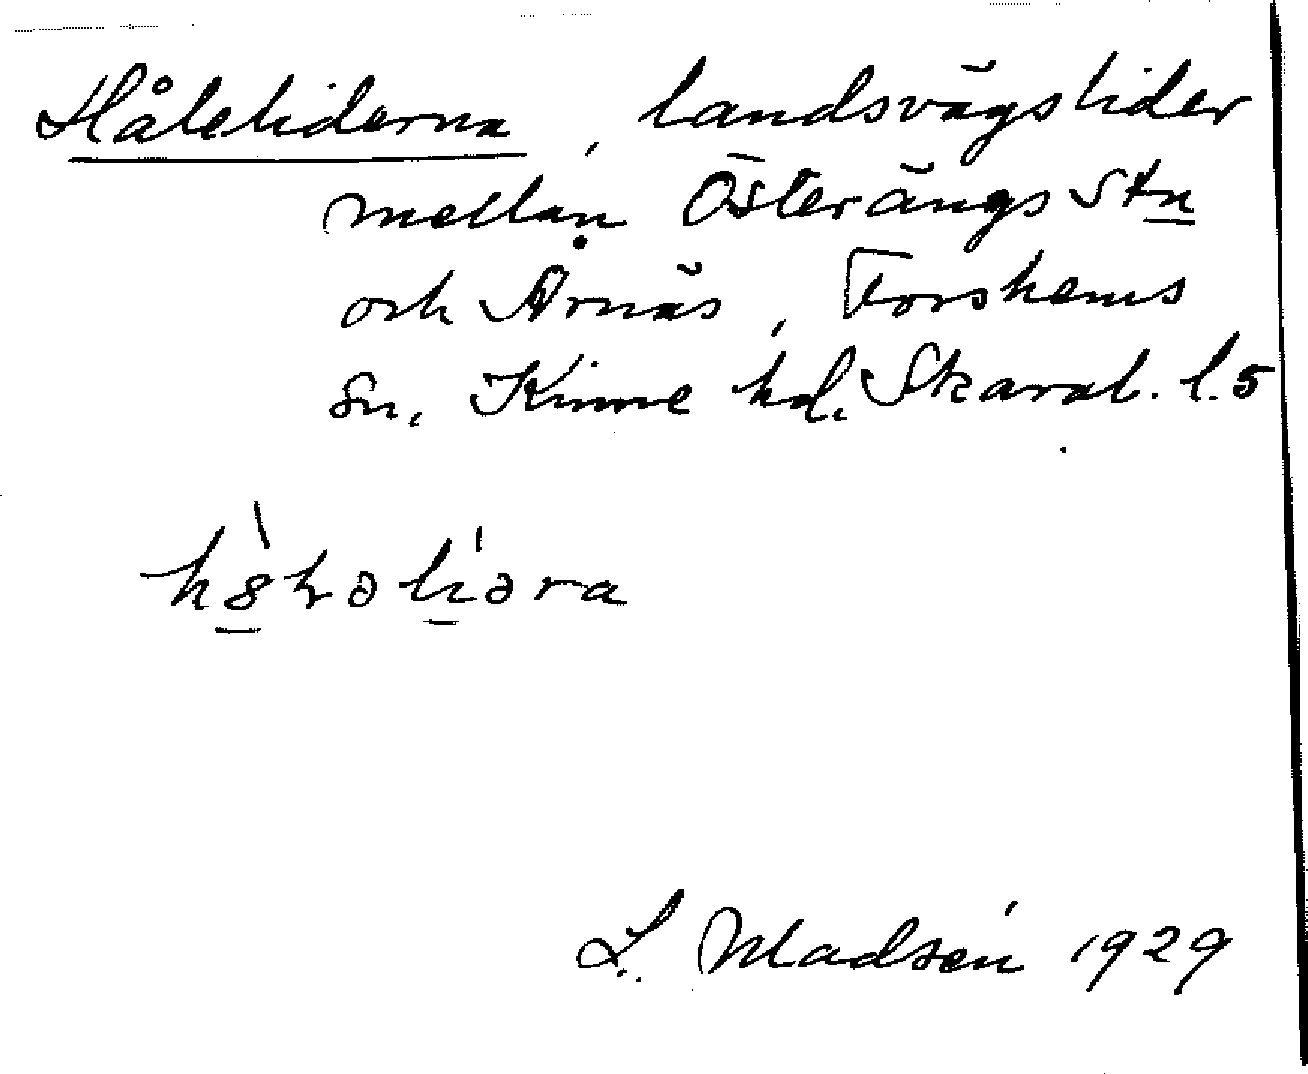 Håleliderna, landsvägslider
mellan Österängs Stn
och Årnäs, Forshems
Sn. Kinne hd. Skarab. l.
L. Madsén 1929